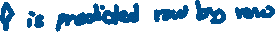 is predicted row by row